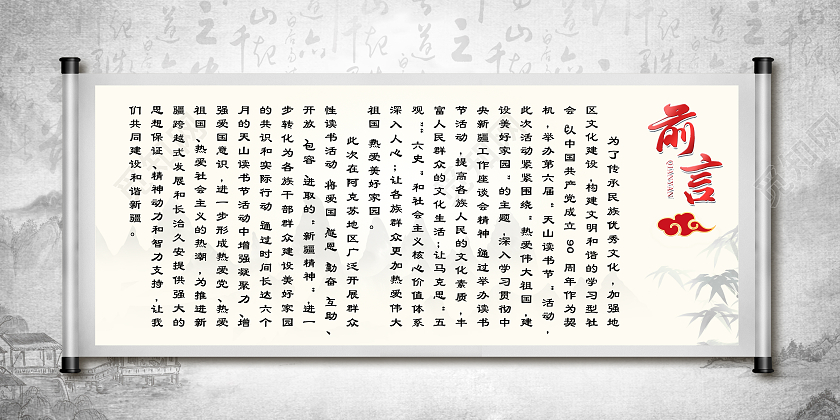 前言
QIANYAN
为了传承民族优秀文化，加强地
区文化建设，构建文明和谐的学习型社
会 以中国共产党成立 90 周年作为契
机，举办第六届“天山读书节”活动，
此次活动紧紧围绕“热爱伟大祖国，建
设美好家园”的主题，深入学习贯彻中
央新疆工作座谈会精神 通过举办读书
节活动，提高各族人民的文化素质，丰
富人民群众的文化生活；让马克思“五
观”“六史”和社会主义核心价值体系
深入人心；让各族群众更加热爱伟大
祖国 热爱美好家园。
此次在阿克苏地区广泛开展群众
性读书活动 将爱国 感恩 勤奋 互助、
开放 包容 进取的“新疆精神”，进一
步转化为各族干部群众建设美好家园
的共识和实际行动 通过时间长达六个
月的天山读书节活动中增强凝聚力、增
强爱国意识，进一步形成热爱党、热爱
祖国、热爱社会主义的热潮，为推进新
疆跨越式发展和长治久安提供强大的
思想保证、精神动力和智力支持，让我
们共同建设和谐新疆。